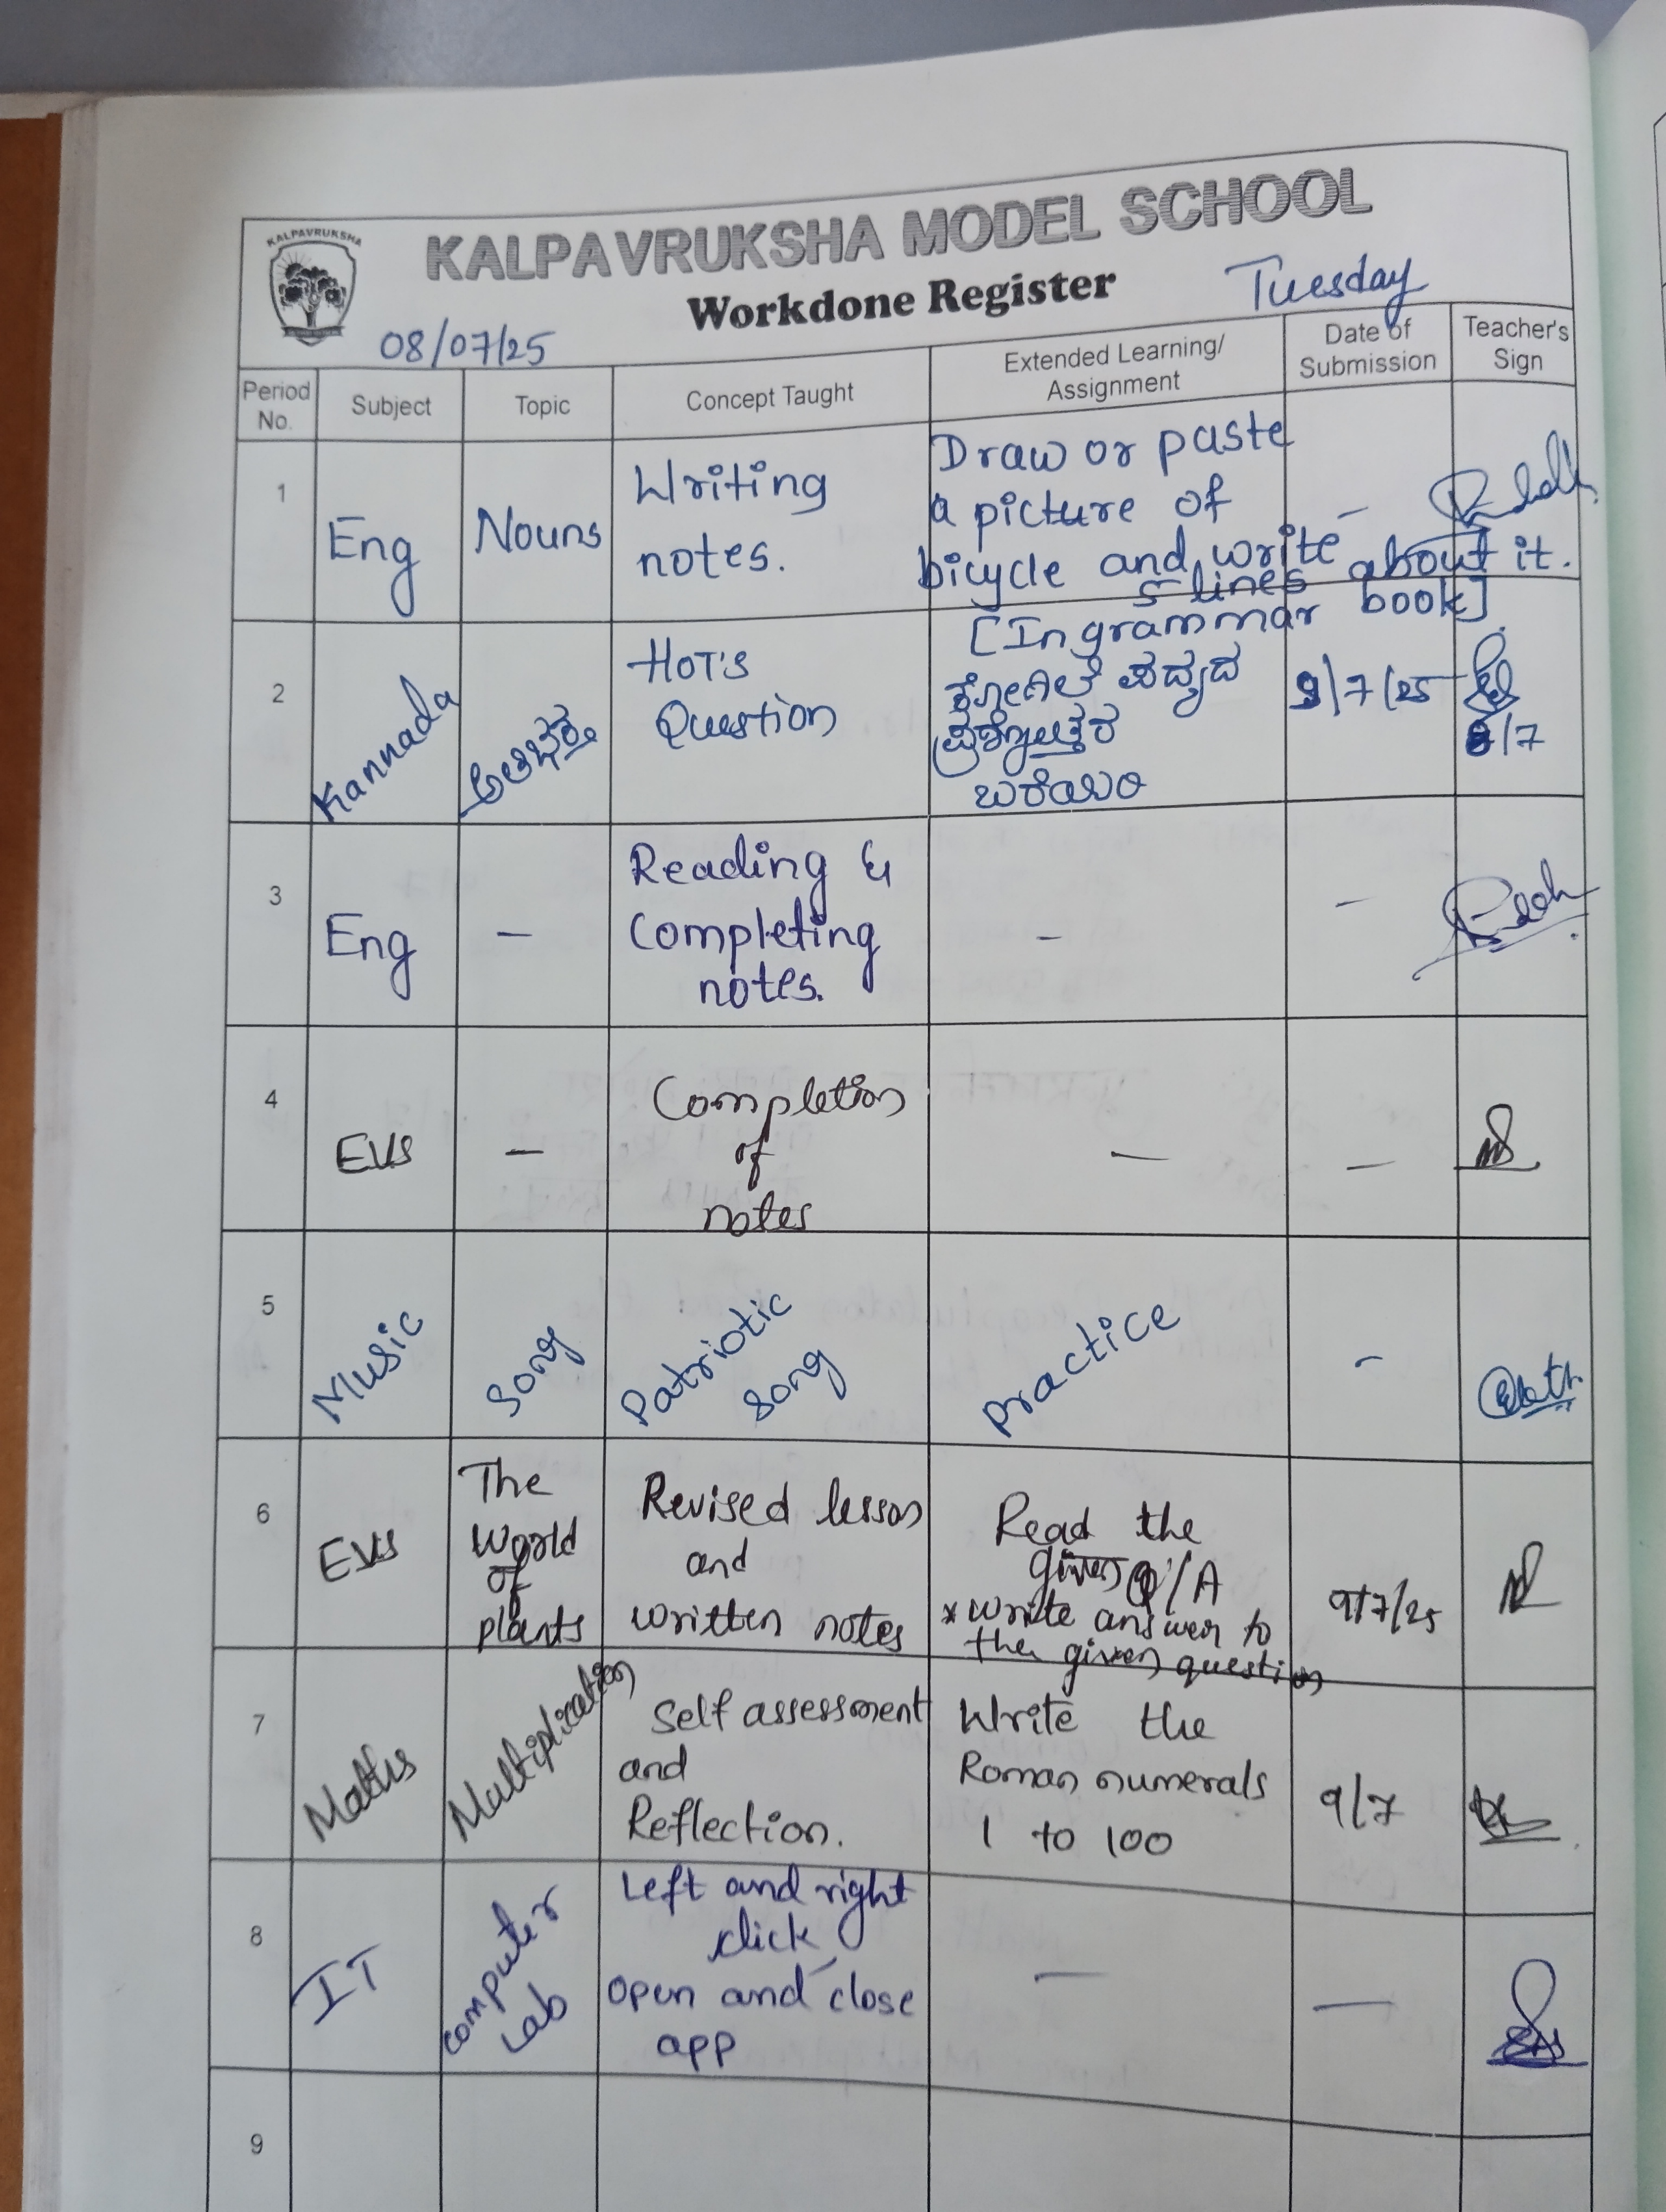 KALPAVRUKSHA
KALPAVRUKSHA MODEL SCHOOL
Workdone Register
Tuesday
08/07/25
Period No.
Subject
Topic
Concept Taught
Extended Learning/
Assignment
Date of
Submission
Teacher's
Sign
1
Eng
Nouns
Writing
notes.
Draw or paste
a picture of
bicycle and write about it.
5 lines
[In grammar book]
-
2
Kannada
HOT'S
Question
ಕೋಗಿಲೆ ಪದ್ಯದ
ಪ್ರಶ್ನೋತ್ತರ
ಬರೆಯಿರಿ
9/7/25
8/7
3
Eng
-
Reading &
Completing
notes.
-
-
4
EVS
-
Completion
of
notes
-
-
5
Music
Song
Patriotic
Song
Practice
-
6
EVS
The
World
of
plants
Revised lesson
and
written notes
Read the
given Q/A
* write answer to
the given question
9/7/25
7
Maths
Multiplication
Self assessment
and
Reflection.
Write the
Roman numerals
1 to 100
9/7
8
IT
Computer
Lab
Left and right
click
open and close
app
-
-
9